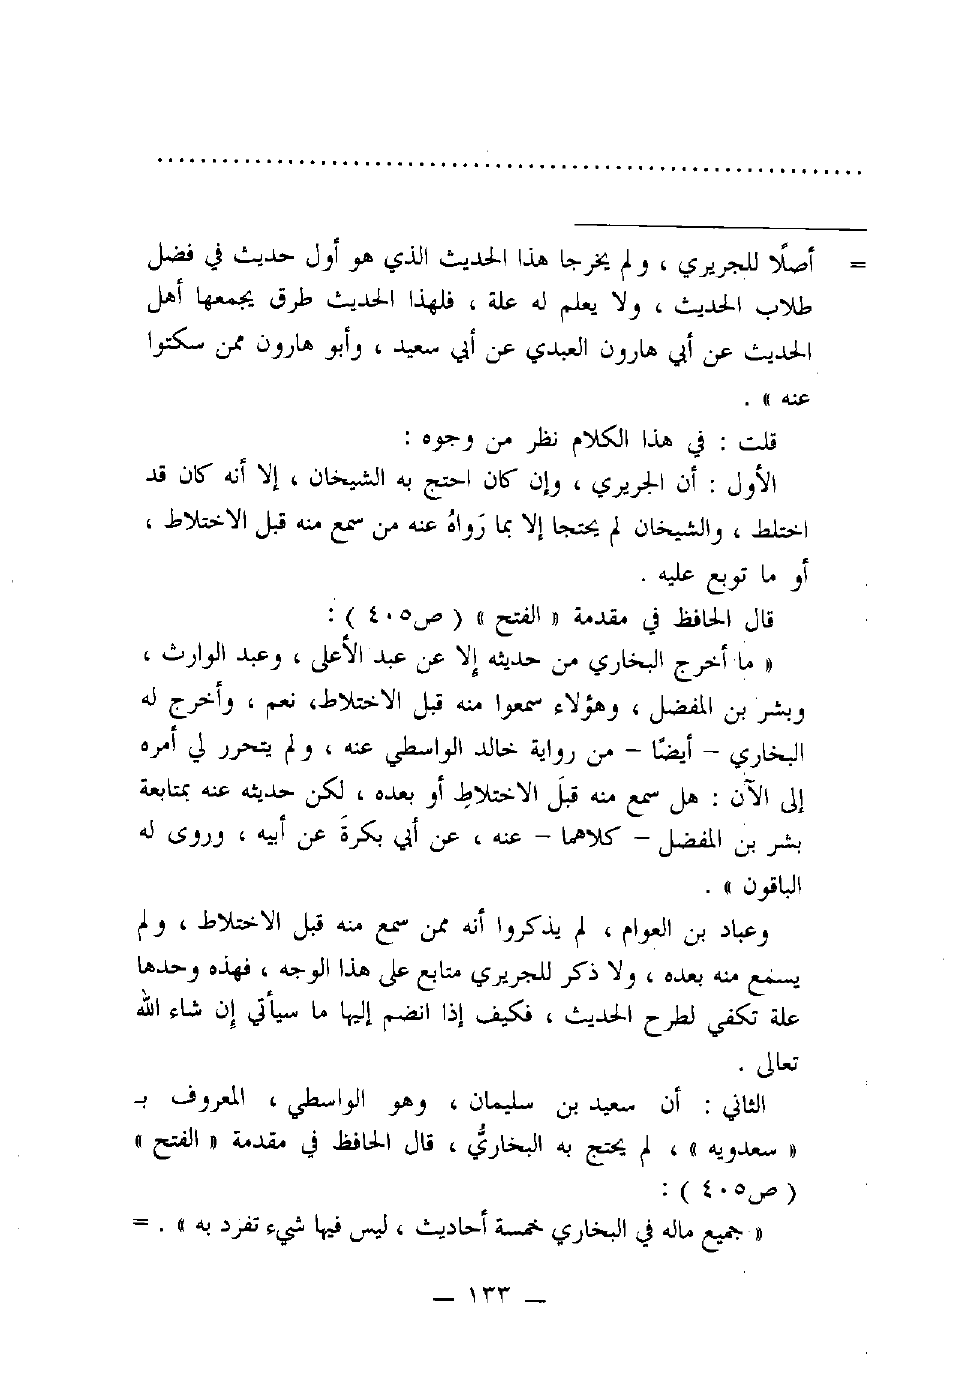 = أصلًا للجريري ، ولم يخرجا هذا الحديث الذي هو أول حديث في فضل
طلاب الحديث ، ولا يعلم له علة ، فلهذا الحديث طرق يجمعها أهل
الحديث عن أبي هارون العبدي عن أبي سعيد ، وأبو هارون ممن سكتوا
عنه » .
قلت : في هذا الكلام نظر من وجوه :
الأول : أن الجريري ، وإن كان احتج به الشيخان ، إلا أنه كان قد
اختلط ، والشيخان لم يحتجا إلا بما رَواهُ عنه من سمع منه قبل الاختلاط ،
أو ما توبع عليه .
قال الحافظ في مقدمة « الفتح » ( ص٤٠٥ ) :
« ما أخرج البخاري من حديثه إلا عن عبد الأعلى ، وعبد الوارث ،
وبشر بن المفضل ، وهؤلاء سمعوا منه قبل الاختلاط، نعم ، وأخرج له
البخاري – أيضًا – من رواية خالد الواسطي عنه ، ولم يتحرر لي أمره
إلى الآن : هل سمع منه قبلَ الاختلاطِ أو بعده ، لكن حديثه عنه بمتابعة
بشر بن المفضل – كلاهما – عنه ، عن أبي بكرةَ عن أبيه ، وروى له
الباقون » .
وعباد بن العوام ، لم يذكروا أنه ممن سمع منه قبل الاختلاط ، ولم
يسمع منه بعده ، ولا ذكر للجريري متابع على هذا الوجه ، فهذه وحدها
علة تكفي لطرح الحديث ، فكيف إذا انضم إليها ما سيأتي إن شاء الله
تعالى .
الثاني : أن سعيد بن سليمان ، وهو الواسطي ، المعروف بـ
« سعدويه » ، لم يحتج به البخاريُّ ، قال الحافظ في مقدمة « الفتح »
( ص٤٠٥ ) :
« جميع ماله في البخاري خمسة أحاديث ، ليس فيها شيء تفرد به » . =
— ١٣٣ —